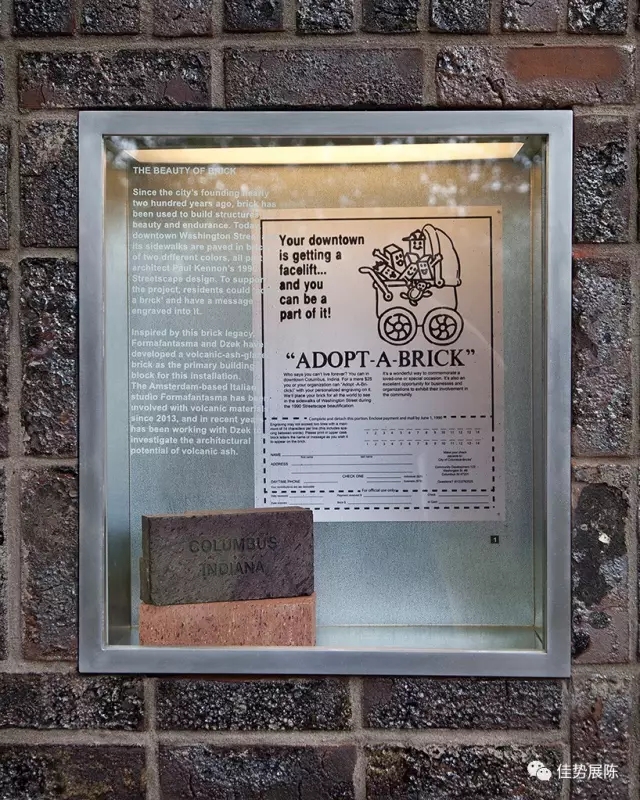 THE BEAUTY OF BRICK
Since the city's founding nearly
two hundred years ago, brick has
been used to build structures
beauty and endurance. Today
downtown Washington Street
its sidewalks are paved in brick
of two different colors, all
architect Paul Kennon's
Streetscape design. To support
the project, residents could
a brick' and have a message
engraved into it.
Inspired by this brick legacy
Formafantasma and Dzek have
developed a volcanic-ash-glazed
brick as the primary building
block for this installation.
The Amsterdam-based Italian
studio Formafantasma has been
involved with volcanic material
since 2013, and in recent years
has been working with Dzek
investigate the architectural
potential of volcanic ash.
Your downtown
is getting a
facelift...
and you
can be a
part of it!
"ADOPT-A-BRICK"
Who says you can't live forever? You can in
downtown Columbus, Indiana. For a mere $25
you or your organization can "Adopt-A-
brick" with your personalized engraving on it.
We'll place your brick for all the world to see
in the sidewalks of Washington Street during
the 1990 Streetscape beautification.
It's a wonderful way to commemorate a
loved-one or special occasion. It's also an
excellent opportunity for businesses and
organizations to exhibit their involvement in
the community.
Complete and detach this portion. Enclose payment and mail by June 1, 1990
NAME
ADDRESS
CHECK ONE
DAYTIME PHONE
For official use only
COLUMBUS
INDIANA
1
佳势展陈